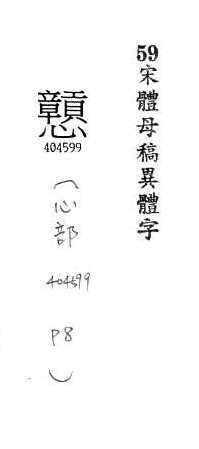 59宋體母稿異體字
戅
404599
(心部
404599
P8)